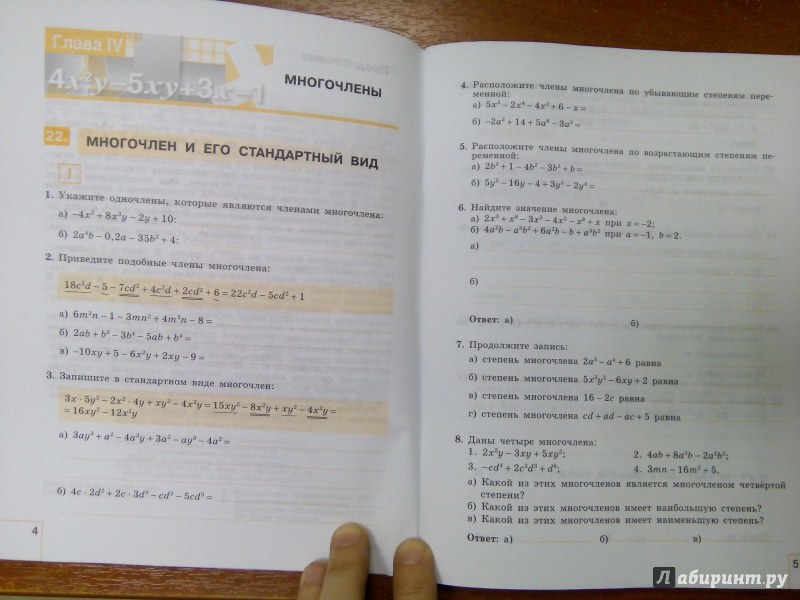 Глава IV
4x²y−5xy+3x−1
МНОГОЧЛЕНЫ
22.
МНОГОЧЛЕН И ЕГО СТАНДАРТНЫЙ ВИД
I
1. Укажите одночлены, которые являются членами многочлена:
а) −4x² + 8x²y − 2y + 10:
б) 2a⁴b − 0,2a − 35b² + 4:
2. Приведите подобные члены многочлена:
18c²d − 5 − 7cd² + 4c²d + 2cd² + 6 = 22c²d − 5cd² + 1
а) 6m³n − 1 − 3mn² + 4m³n − 8 =
б) 2ab + b² − 3b⁴ − 5ab + b⁴ =
в) −10xy + 5 − 6x²y + 2xy − 9 =
3. Запишите в стандартном виде многочлен:
3x · 5y² − 2x² · 4y + xy² − 4x²y = 15xy² − 8x²y + xy² − 4x²y =
= 16xy² − 12x²y
а) 3ay³ + a² − 4a³y + 3a² − ay³ − 4a² =
б) 4c · 2d² + 2c · 3d³ − cd² − 5cd³ =
4
4. Расположите члены многочлена по убывающим степеням пере-
менной:
а) 5x³ − 2x⁴ − 4x² + 6 − x =
б) −2a² + 14 + 5a⁶ − 3a³ =
5. Расположите члены многочлена по возрастающим степеням пе-
ременной:
а) 2b³ + 1 − 4b² − 3b⁵ + b =
б) 5y⁵ − 16y − 4 + 3y³ − 2y⁴ =
6. Найдите значение многочлена:
а) 2x³ + x⁸ − 3x³ − 4x² − x⁸ + x при x = −2;
б) 4a³b − a³b² + 6a²b − b + a³b² при a = −1, b = 2.
а)
б)
Ответ: а) б)
7. Продолжите запись:
а) степень многочлена 2a³ − a⁴ + 6 равна
б) степень многочлена 5x³y² − 6xy + 2 равна
в) степень многочлена 16 − 2c равна
г) степень многочлена cd + ad − ac + 5 равна
8. Даны четыре многочлена:
1. 2x²y − 3xy + 5xy²; 2. 4ab + 8a³b − 2a²b²;
3. −cd⁴ + 2c²d³ + d⁶; 4. 3mn − 16m² + 5.
а) Какой из этих многочленов является многочленом четвёртой
степени?
б) Какой из этих многочленов имеет наибольшую степень?
в) Какой из этих многочленов имеет наименьшую степень?
Ответ: а) б) в)
5
Лабиринт.ру